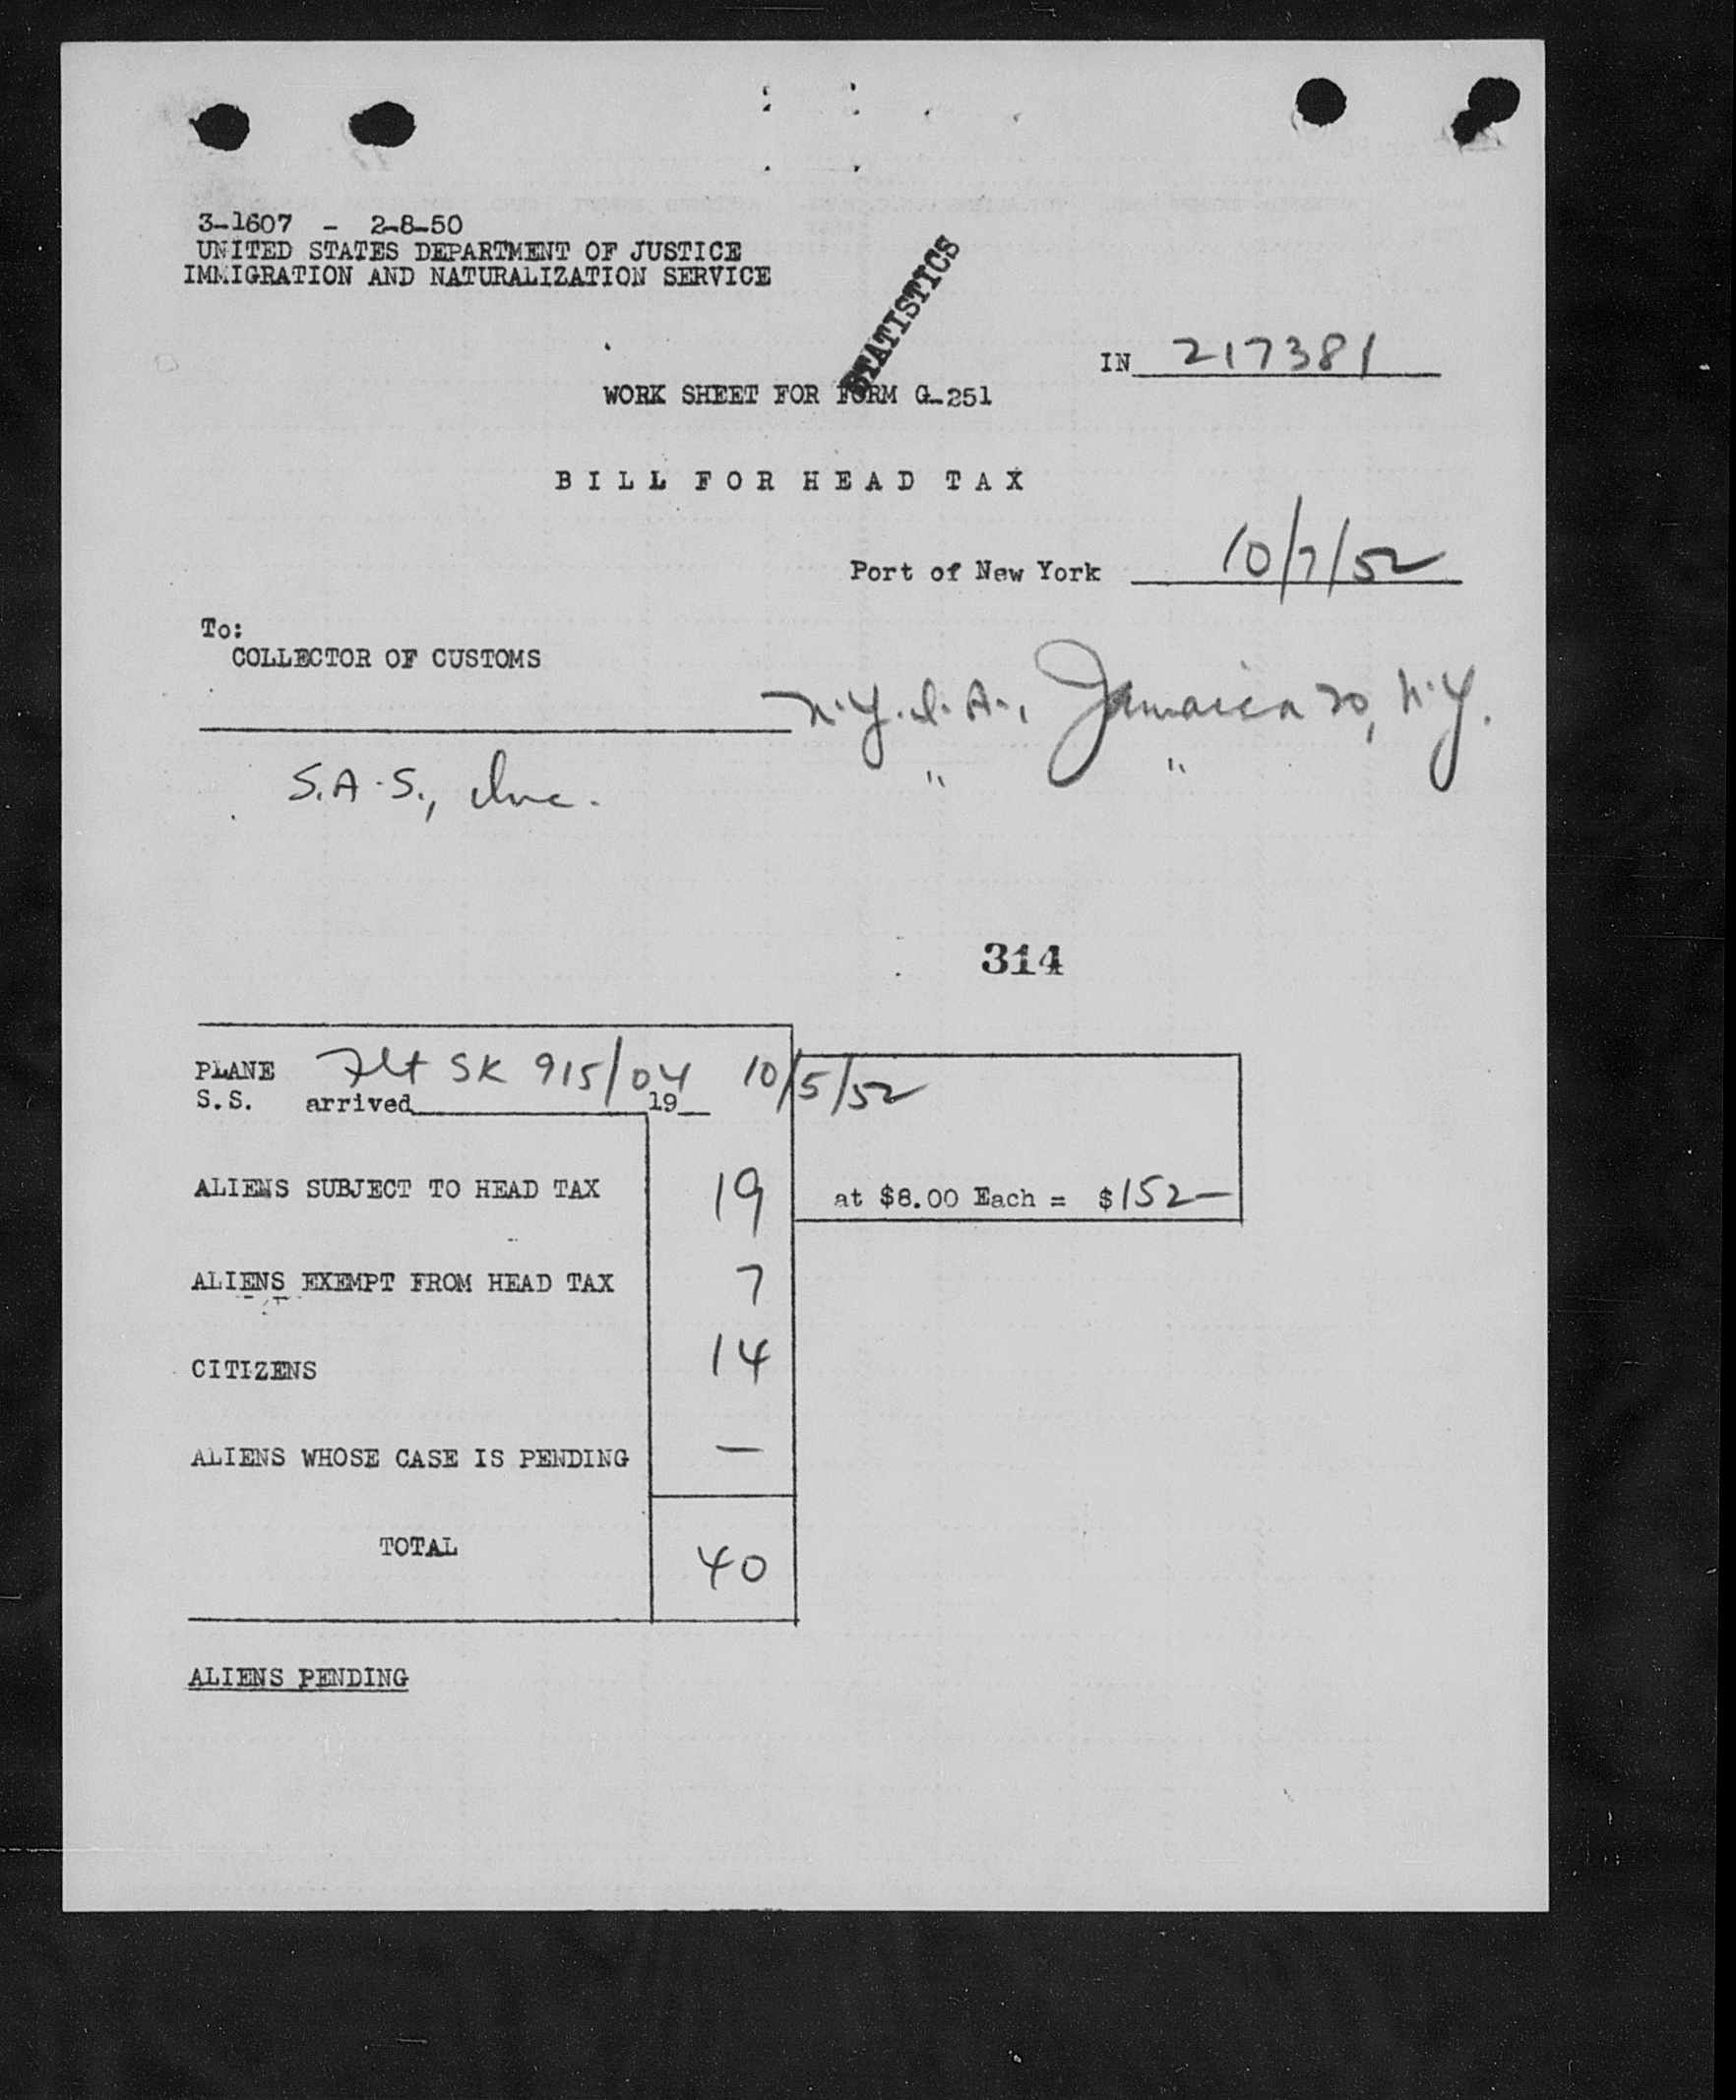 3-1607 - 2-8-50
UNITED STATES DEPARTMENT OF JUSTICE
IMMIGRATION AND NATURALIZATION SERVICE
STATISTICS
IN 217381
WORK SHEET FOR FORM G-251
BILL FOR HEAD TAX
Port of New York 10/7/52
To:
COLLECTOR OF CUSTOMS
N.Y.I.A., Jamaica 30, N.Y.
S.A.S., Inc. " "
314
PLANE Flt SK 915/04 10/5/52
S.S. arrived 19
ALIENS SUBJECT TO HEAD TAX 19 at $8.00 Each = $152-
ALIENS EXEMPT FROM HEAD TAX 7
CITIZENS 14
ALIENS WHOSE CASE IS PENDING —
TOTAL 40
ALIENS PENDING